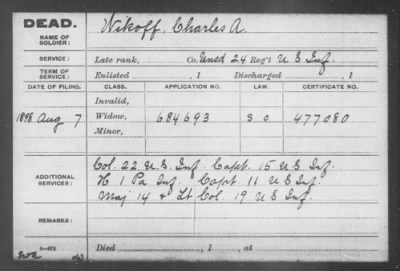 DEAD.
NAME OF SOLDIER: Wikoff, Charles A.
SERVICE: Late rank, Co. Unsd 24 Reg't U S Inf.
TERM OF SERVICE: Enlisted , 1 Discharged , 1
DATE OF FILING. CLASS. APPLICATION NO. LAW. CERTIFICATE NO.
Invalid,
1898 Aug 7 Widow, 684693 S O 477080
Minor,
ADDITIONAL SERVICES:
Col. 22 U.S. Inf. Capt. 15 U S Inf.
H 1 Pa Inf. Capt. 11 U S Inf.
Maj 14 & Lt Col. 19 U S Inf.
REMARKS:
Died , 1 , at